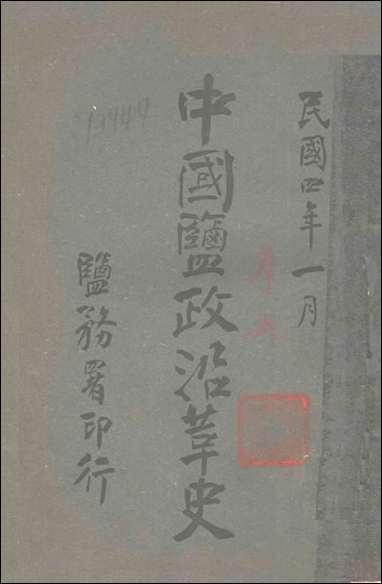 民國四年一月
中國鹽政沿革史
鹽務署印行